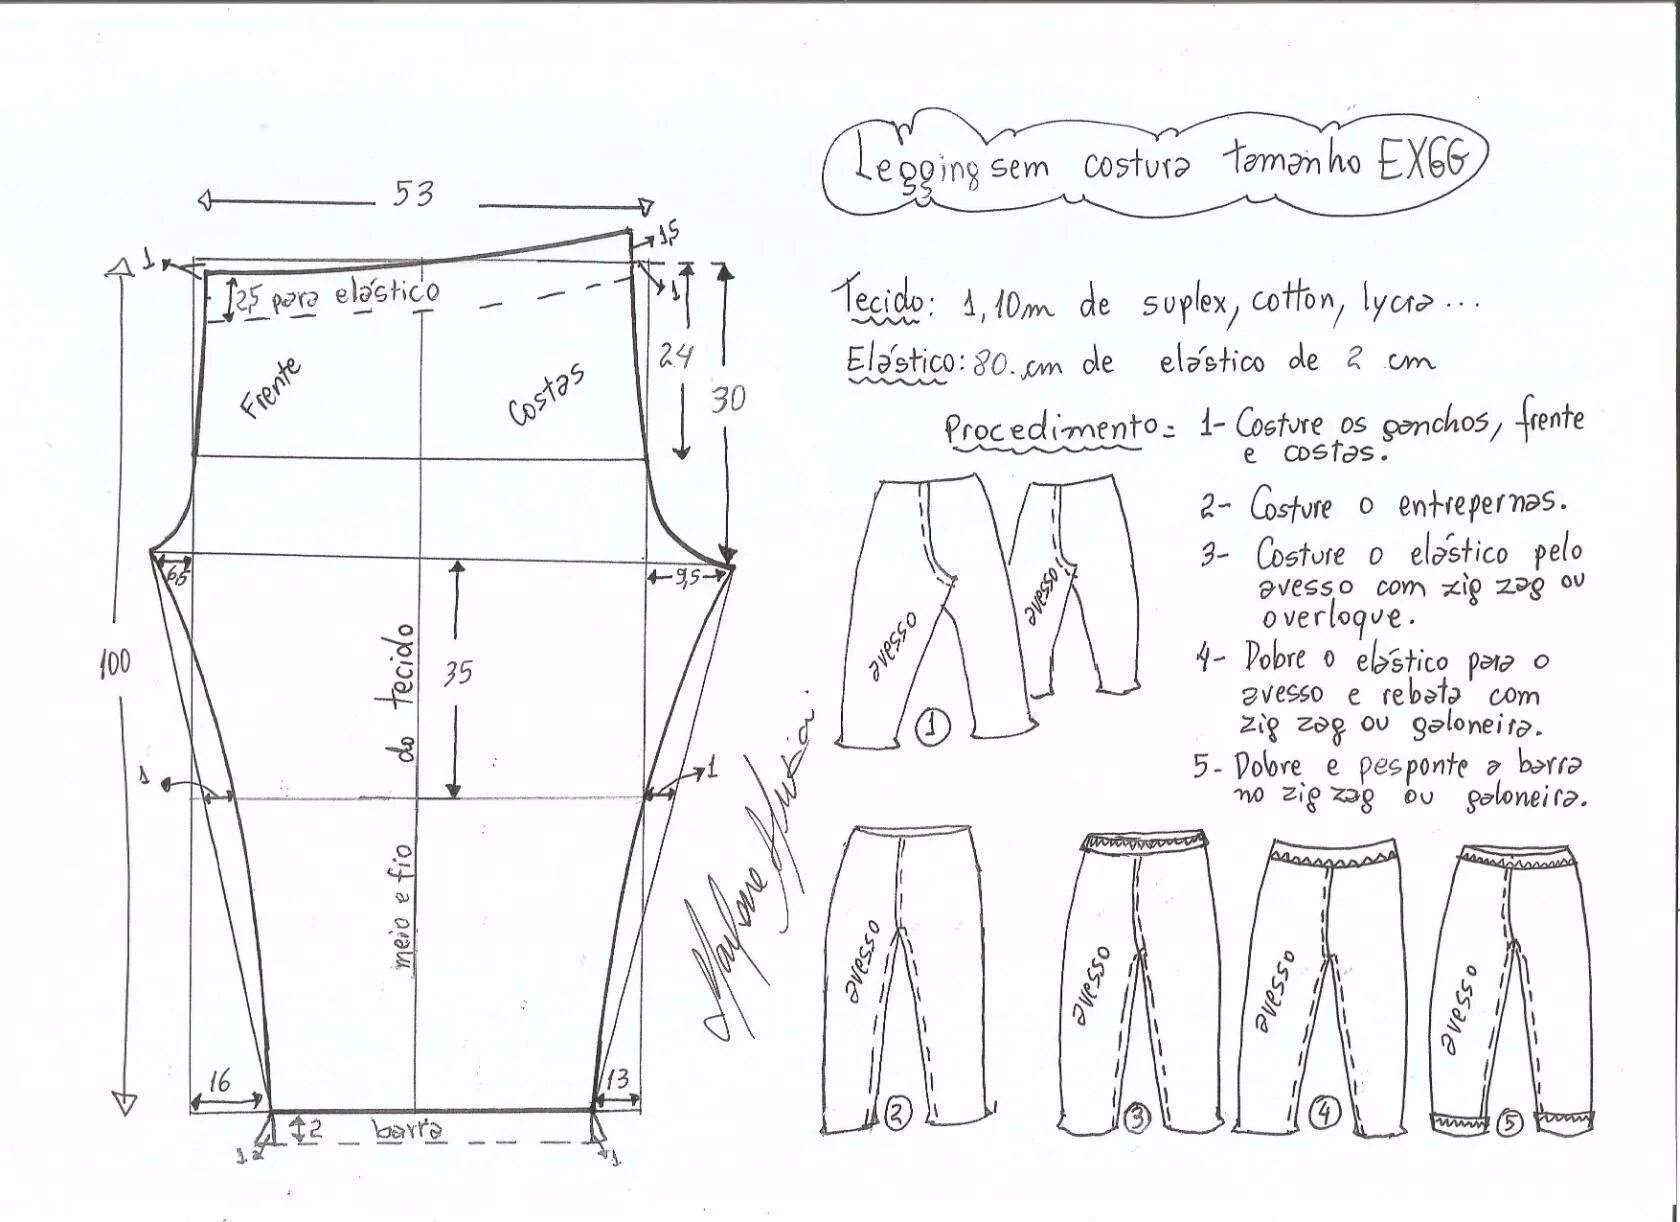 Legging sem costura tamanho EXGG
53
1
1,5
1
2,5 para elástico
Frente
Costas
24
30
Tecido: 1,10m de suplex, cotton, lycra...
Elástico: 80 cm de elástico de 2 cm
Procedimento= 1- Costure os ganchos, frente
e costas.
2- Costure o entrepernas.
3- Costure o elástico pelo
avesso com zig zag ou
overloque.
4- Dobre o elástico para o
avesso e rebata com
zig zag ou galoneira.
5- Dobre e pesponte a barra
no zig zag ou galoneira.
6,5
9,5
100
35
meio e fio do tecido
1
1
16
13
2
barra
1
1
avesso
avesso
1
avesso
2
avesso
3
avesso
4
avesso
5